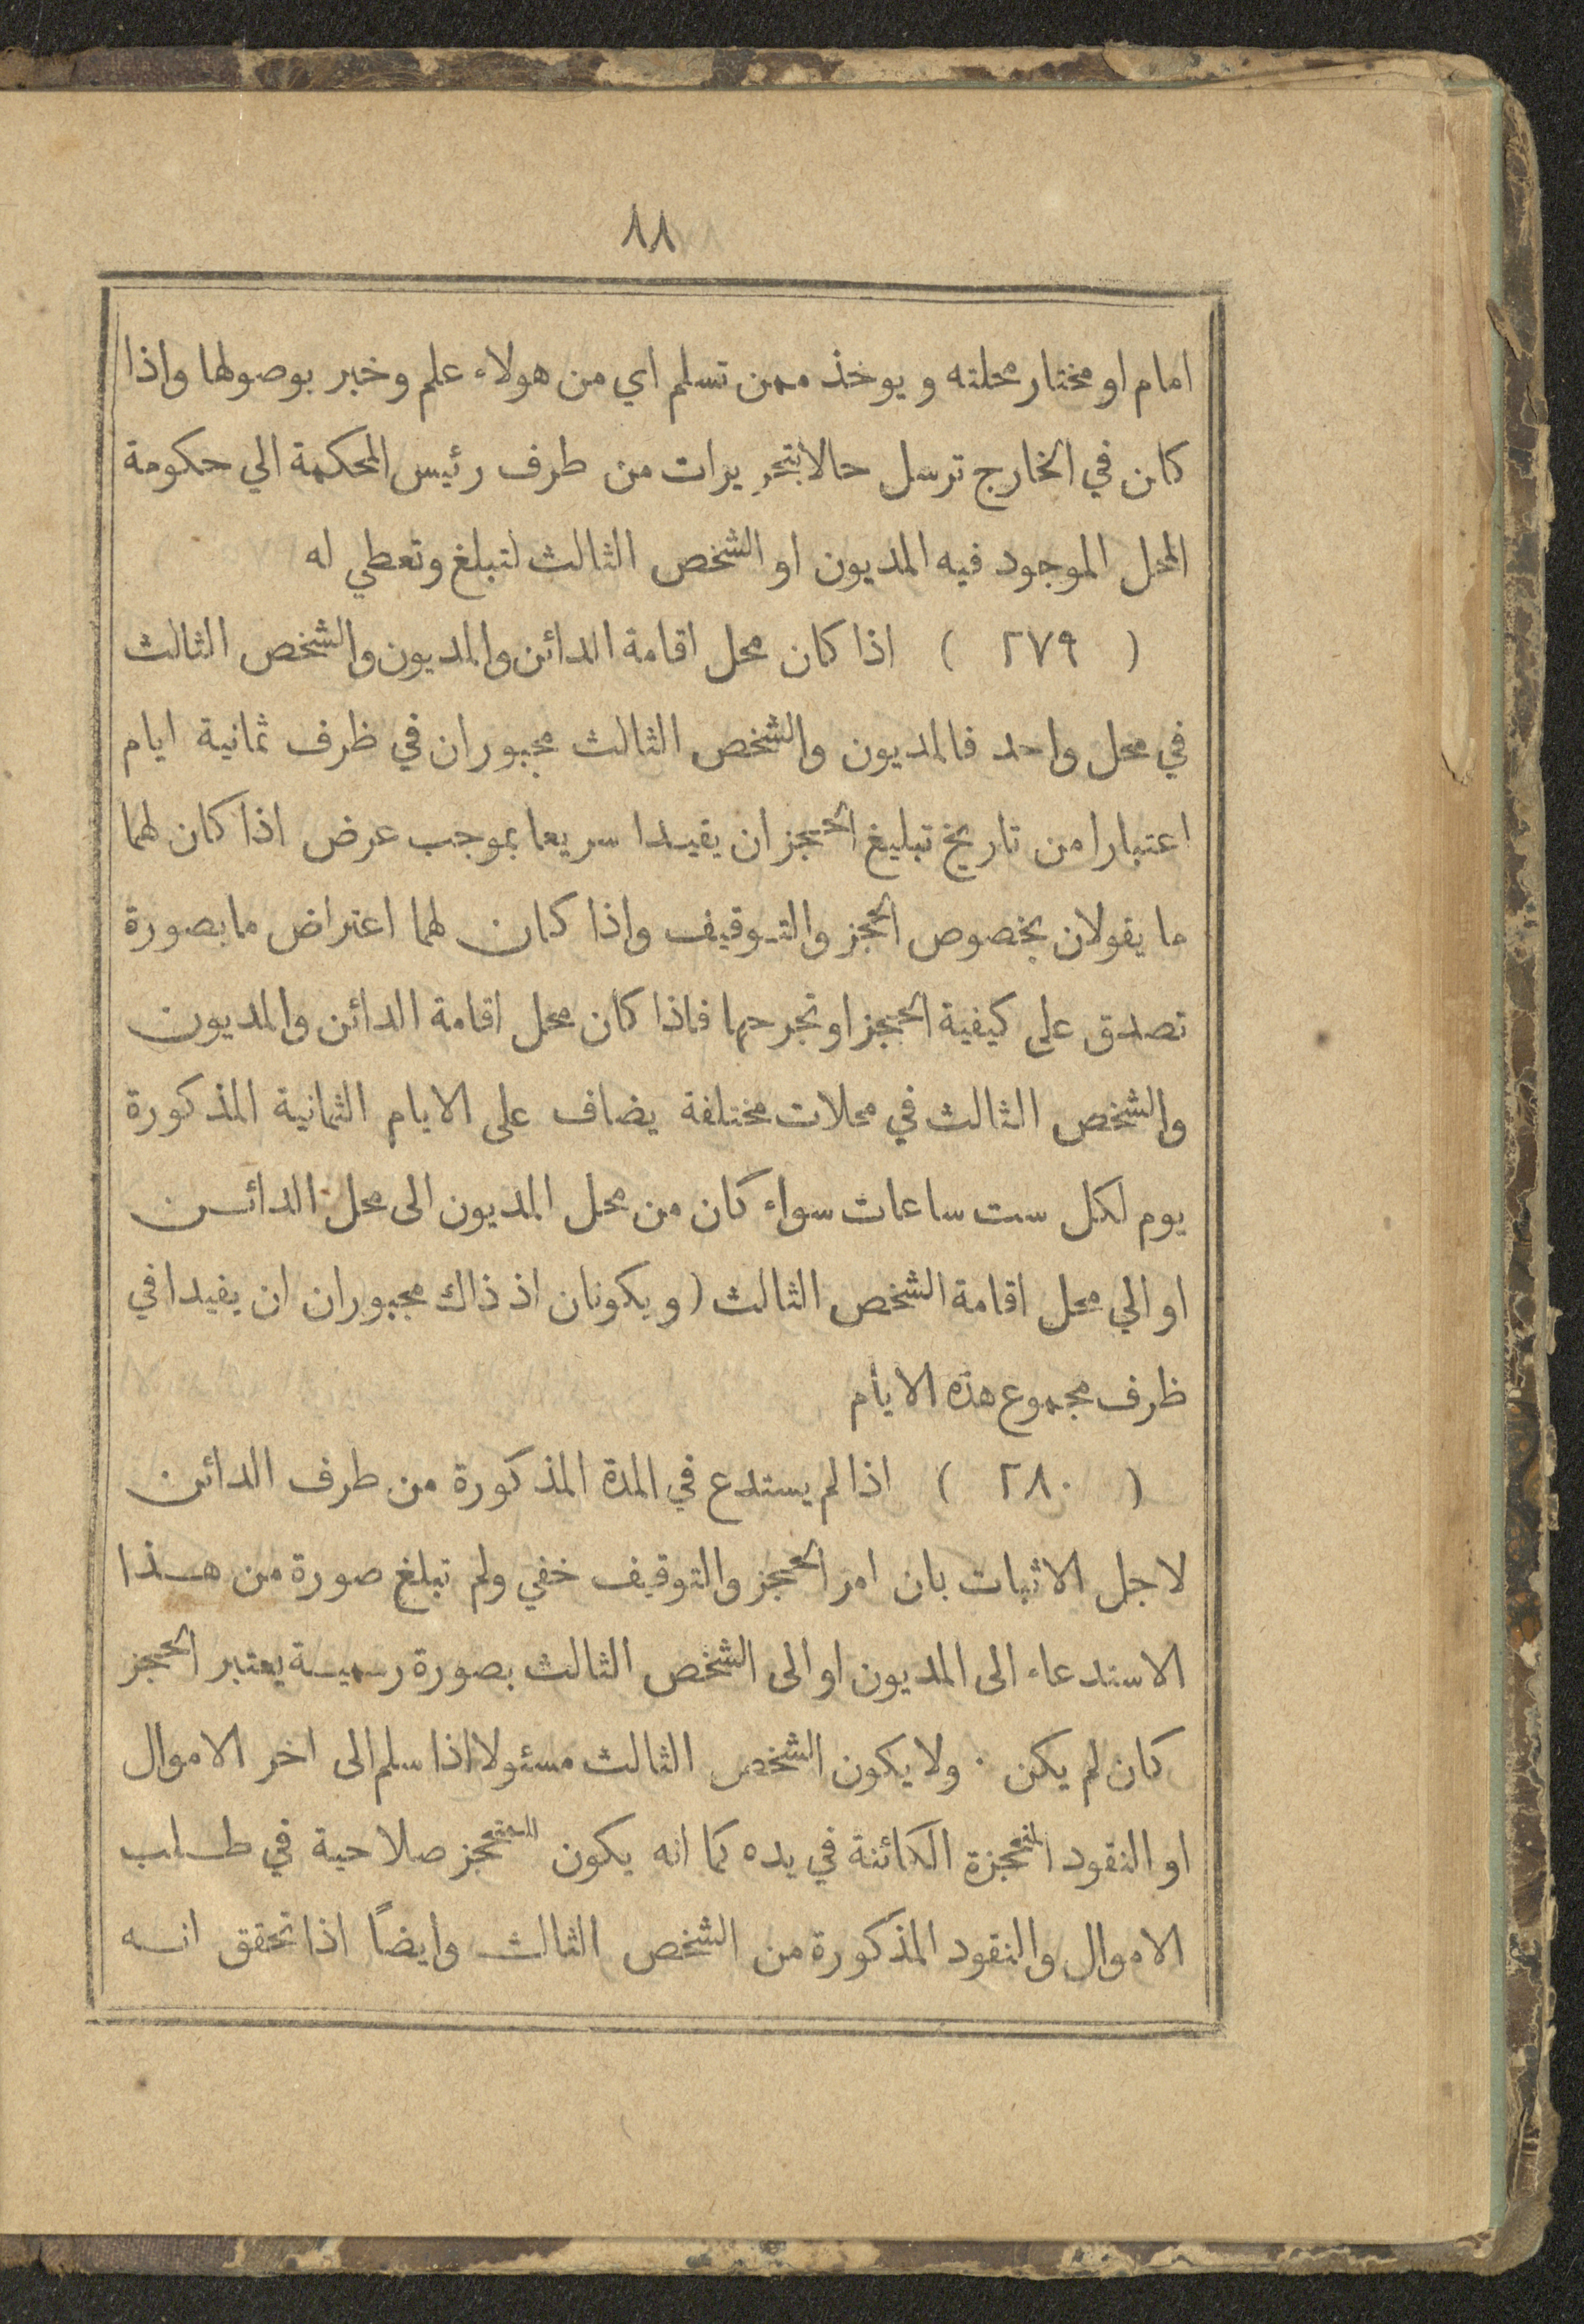 ٨٨
امام او مختار محلته ويوخذ ممن تسلم اي من هولاء علم وخبر بوصولها واذا
كان في الخارج ترسل حالا بتحريرات من طرف رئيس المحكمة الي حكومة
المحل الموجود فيه المديون او الشخص الثالث لتبلغ وتعطي له
( ٢٧٩ ) اذا كان محل اقامة الدائن والمديون والشخص الثالث
في محل واحد فالمديون والشخص الثالث مجبوران في ظرف ثمانية ايام
اعتبارا من تاريخ تبليغ الحجز ان يفيدا سريعا بموجب عرض اذا كان لهما
ما يقولان بخصوص الحجز والتوقيف واذا كان لهما اعتراض ما بصورة
تصدق على كيفية الحجز او تجرحها فاذا كان محل اقامة الدائن والمديون
والشخص الثالث في محلات مختلفة يضاف على الايام الثمانية المذكورة
يوم لكل ست ساعات سواء كان من محل المديون الى محل الدائن
او الي محل اقامة الشخص الثالث ( ويكونان اذ ذاك مجبوران ان يفيدا في
ظرف مجموع هذه الايام
( ٢٨٠ ) اذا لم يستدع في المدة المذكورة من طرف الدائن
لاجل الاثبات بان امر الحجز والتوقيف خفي ولم تبلغ صورة من هذا
الاستدعاء الى المديون او الى الشخص الثالث بصورة رسمية يعتبر الحجز
كان لم يكن · ولا يكون الشخص الثالث مسئولا اذا سلم الى اخر الاموال
او النقود المحجزة الكائنة في يده كما انه يكون للمحجز صلاحية في طلب
الاموال والنقود المذكورة من الشخص الثالث وايضاً اذا تحقق انه